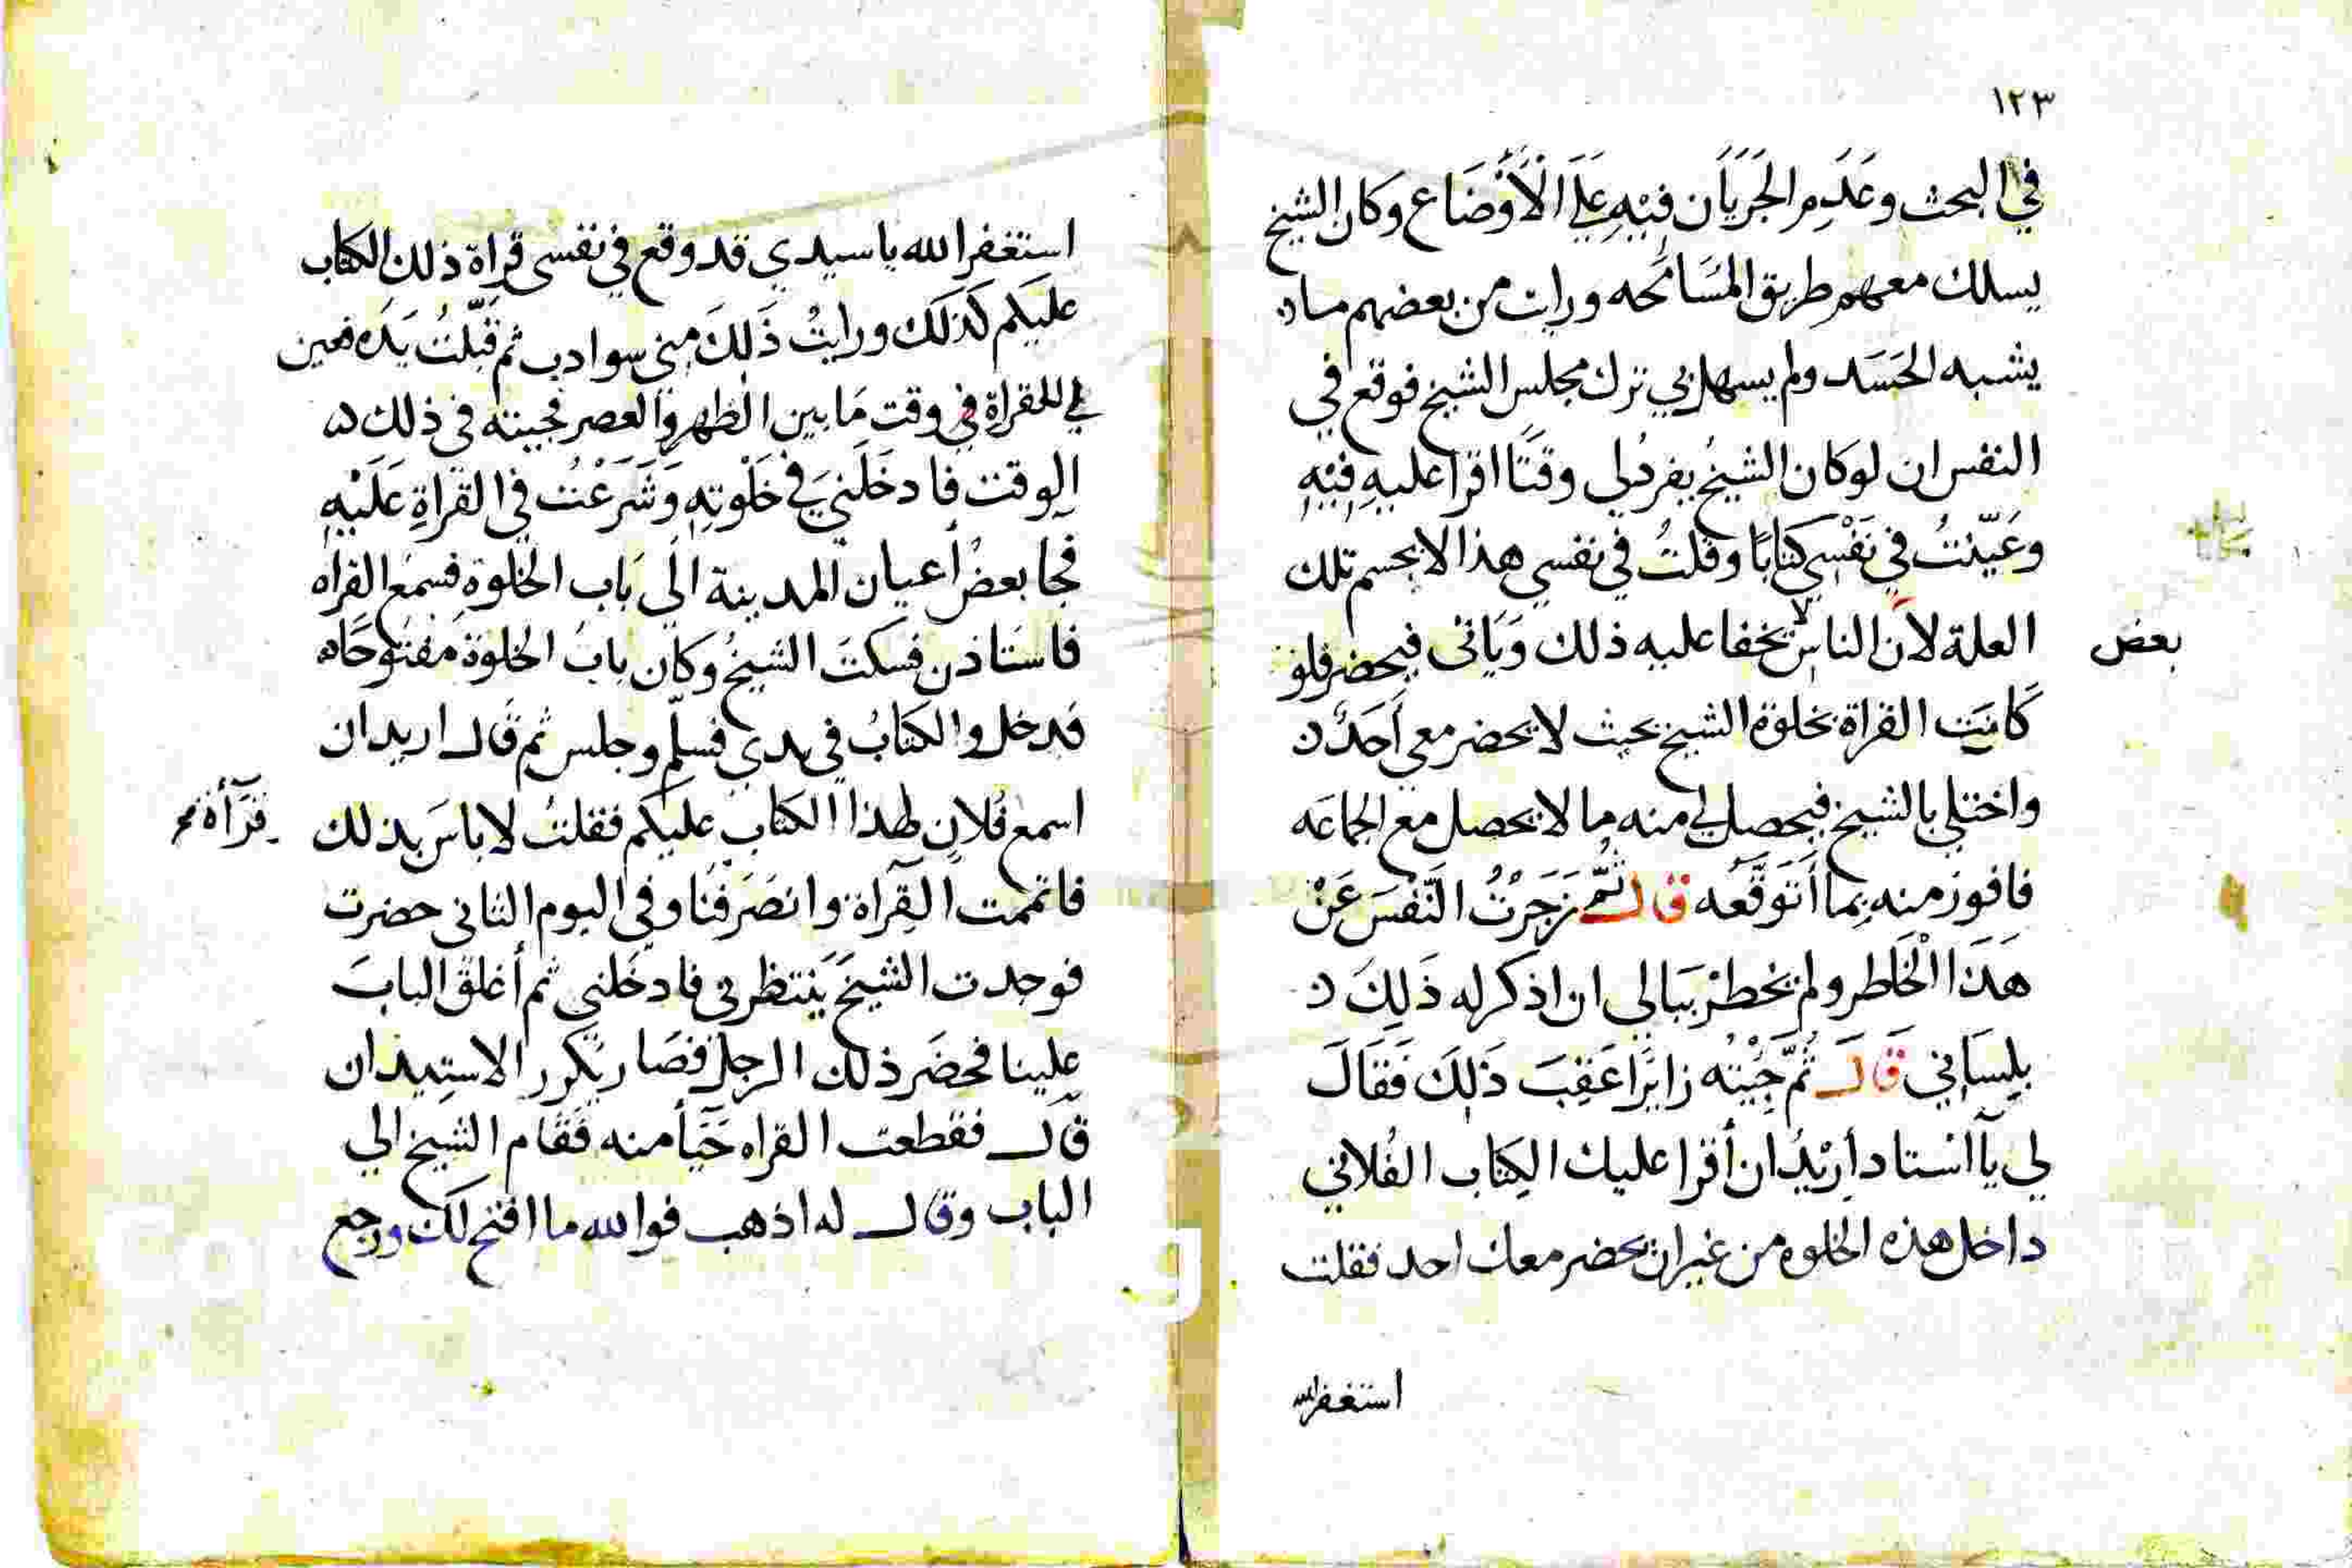 ١٢٣
في البحث وعَدَمِ الجَرَيَان فِيْهِ عَلَى الْأَوْضَاع وكان الشيخ
يسلك معهم طريق المسَامحَه ورايت من بعضهم ما
يشبه الحَسَد ولم يسهل بي ترك مجلس الشيخ فوقع في
النفس ان لو كان الشيخُ يفردُ لي وقتًا اقرا عليهِ فِيْهِ
وعَيّنْتُ في نَفْسِي كتابًا وقلتُ في نفسي هذا لا يحسم تلك
العلة لأن الناس لا يخفا عليه ذلك وَيَاتى فيحضر فلو
بعض
كَانَتِ القراة بخلوَة الشيخ بحيث لا يحضر معي أَحَدٌ
واختلي بالشيخ فيحصل لي منه ما لا يحصل مع الجماعَه
فافوز منه بِما أَتَوَقَّعُه قال ثُمَّ زَجَرْتُ النَّفْسَ عَنْ
هَذَا الْخَاطر ولم يخطرْ ببَالي ان اذكر له ذَلِكَ
بلِسَاني قَالَ ثُمّ جِيْتُه زايرًا عَقِبَ ذَلِكَ فَقَالَ
لي يآ استاد أُرِيْدُ ان أقرا عليك الكِتَاب الفُلاني
داخل هذه الخلوه من غير ان يحضر معك احد فقلت
استغفرالله
استغفر الله يا سيدي قد وقع في نفسى قراة ذلك الكتاب
عليكم كَذلكَ ورايتُ ذَلكَ مِنى سوا دب ثم قَبَّلتُ يَدَه فعين
لي للقراة في وقت مَا بين الظهر والعصر فجيته فى ذلك
الوقت فادخَلَنيَ في خَلْوتِهِ وَشَرَعْتُ في القراةِ عَلَيْهِ
فجا بعضُ أعيان المدينة الَى بَاب الخلوةِ فسمع القراه
فاستاذن فسكتَ الشيخُ وكان بابُ الخلوة مفتوحًا
فدخل والكتابُ في يدي فسلّم وجلس ثم قَال اريد ان
اسمع فُلان لهذا الكتاب عليكم فقلتُ لا باسَ بذلك
قرَآأة
فاتممت القِرآة وانصَرَفْنا وفي اليوم الثانى حضرت
فوجدت الشيخَ يَنتظرنى فادخَلني ثم أغلقَ البابَ
علينا فحضَر ذلك الرجل فصَار يُكرر الاستيذان
قَال فقطعت القراه حَيَآً منه فَقَام الشيخ الي
الباب وقال له اذهب فوالله ما افتح لكَ ورجع